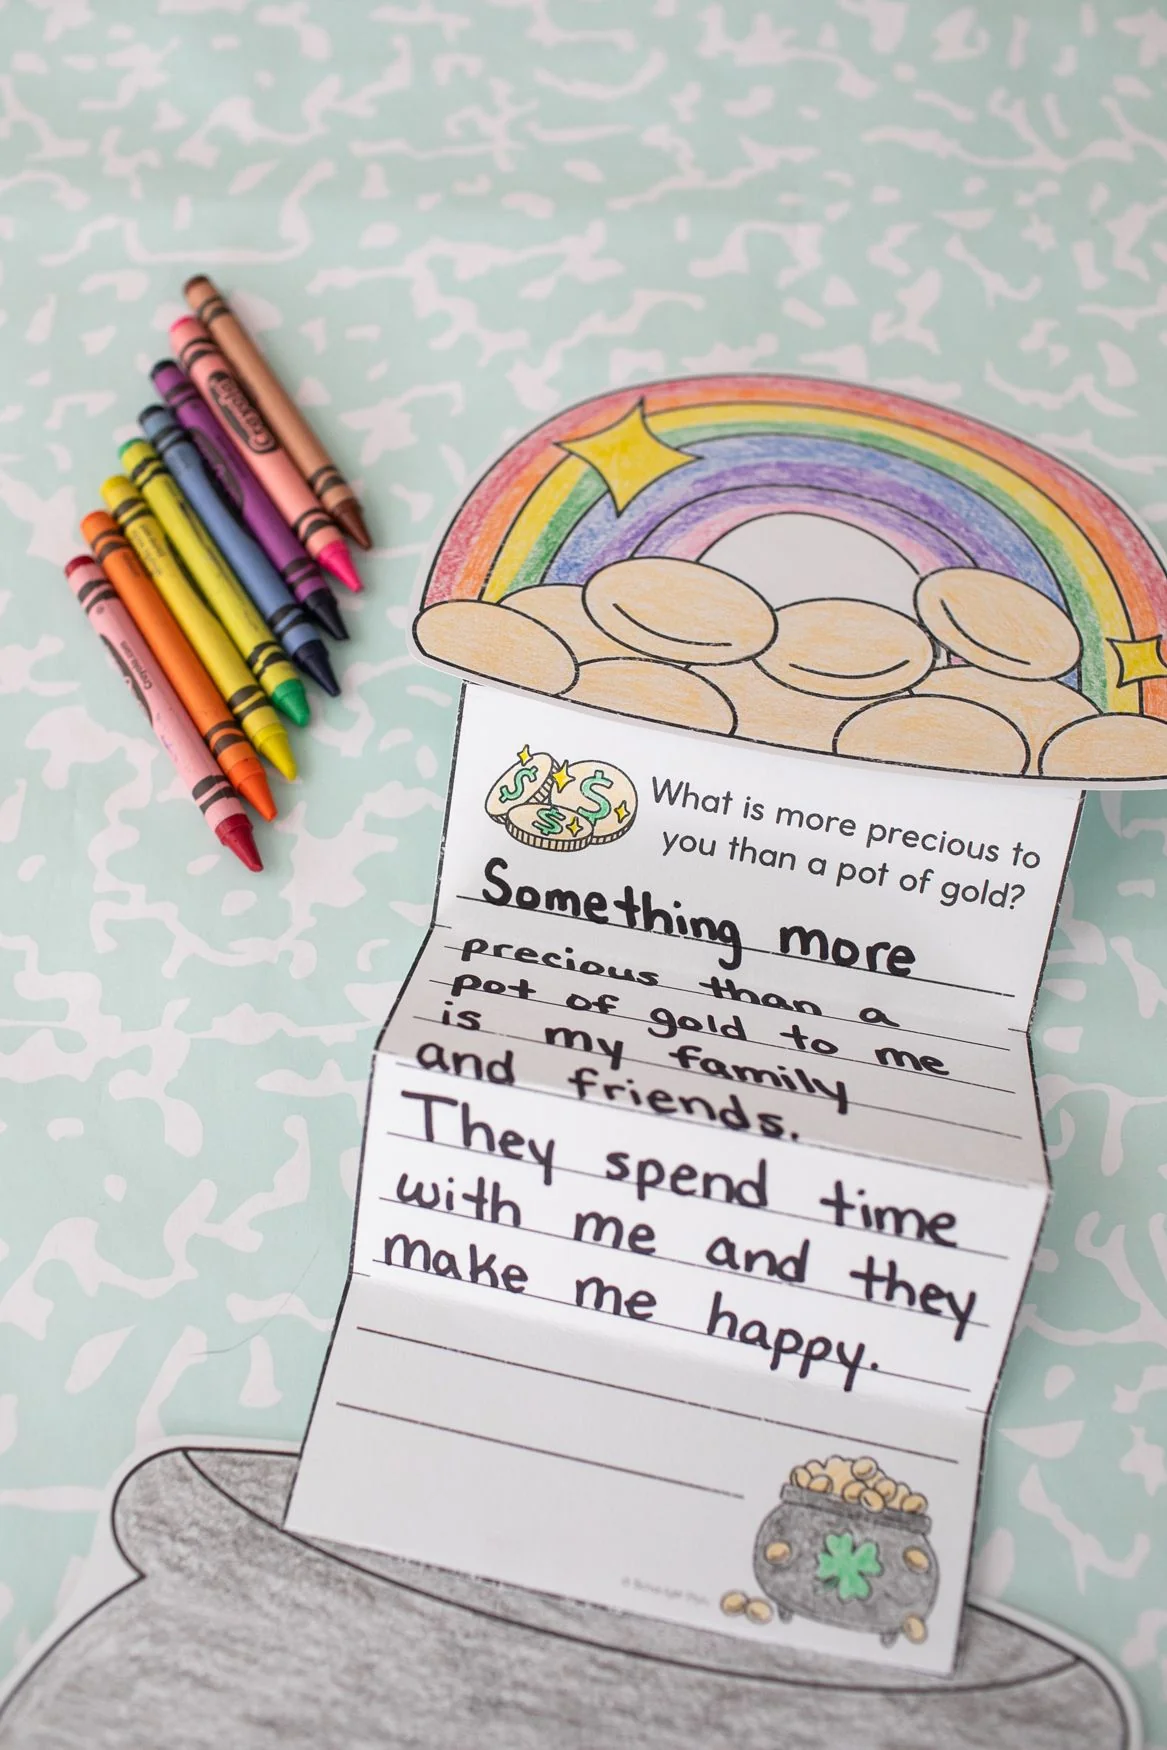 Crayola
Crayola.com
What is more precious to
you than a pot of gold?
Something more
precious than a
pot of gold to me
is my family
and friends.
They spend time
with me and they
make me happy.